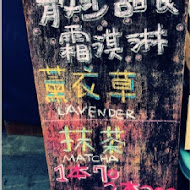 霜淇淋
薰衣草
LAVENDER
抹茶
MATCHA
1本70